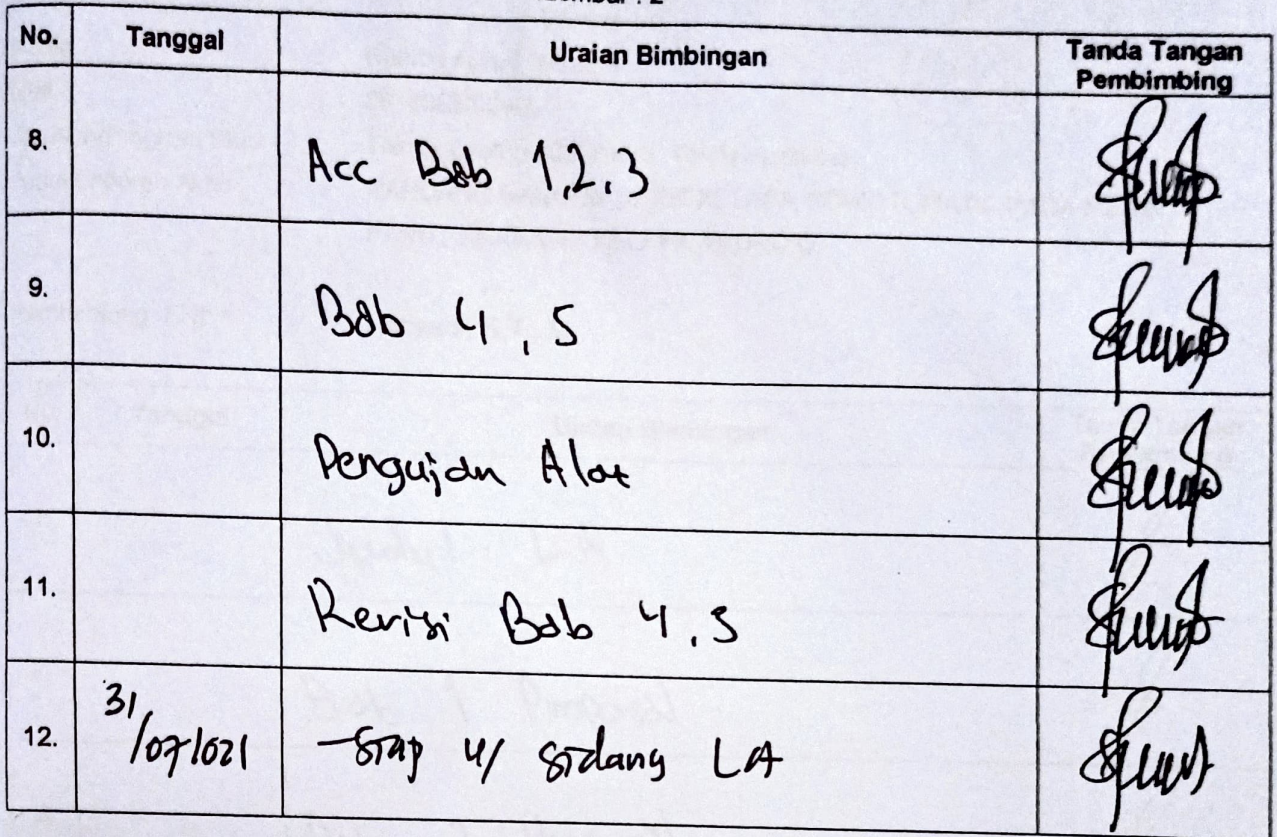 No. Tanggal Uraian Bimbingan Tanda Tangan Pembimbing
8. Acc Bab 1,2,3
9. Bab 4, 5
10. Pengujian Alat
11. Revisi Bab 4,5
12. 31/07/021 Siap u/ sidang LA